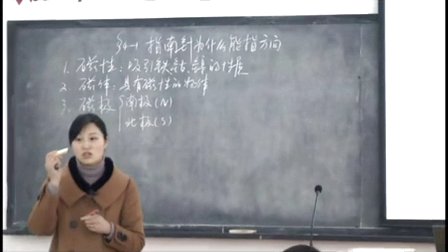 §4-1 指南针为什么能指方向
1. 磁性：吸引铁、钴、镍的性质
2. 磁体：具有磁性的物体
3. 磁极 南极(N)
北极(S)